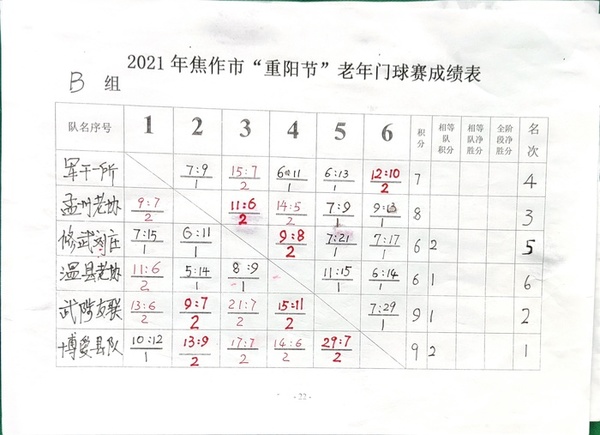 2021年焦作市“重阳节”老年门球赛成绩表
B 组
队名序号 1 2 3 4 5 6 积分 相等队积分 相等队净胜分 全阶段净胜分 名次
军干一所 7:9/1 15:7/2 6:11/1 6:13/1 12:10/2 7 4
孟州老协 9:7/2 11:6/2 14:5/2 7:9/1 9:13/1 8 3
修武 庄 7:15/1 6:11/1 9:8/2 7:21/1 7:17/1 6 2 5
温县老协 11:6/2 5:14/1 8:9/1 11:15/1 6:14/1 6 1 6
武陟友联 13:6/2 9:7/2 21:7/2 15:11/2 7:29/1 9 1 2
博爱县队 10:12/1 13:9/2 17:7/2 14:6/2 29:7/2 9 2 1
- 22 -